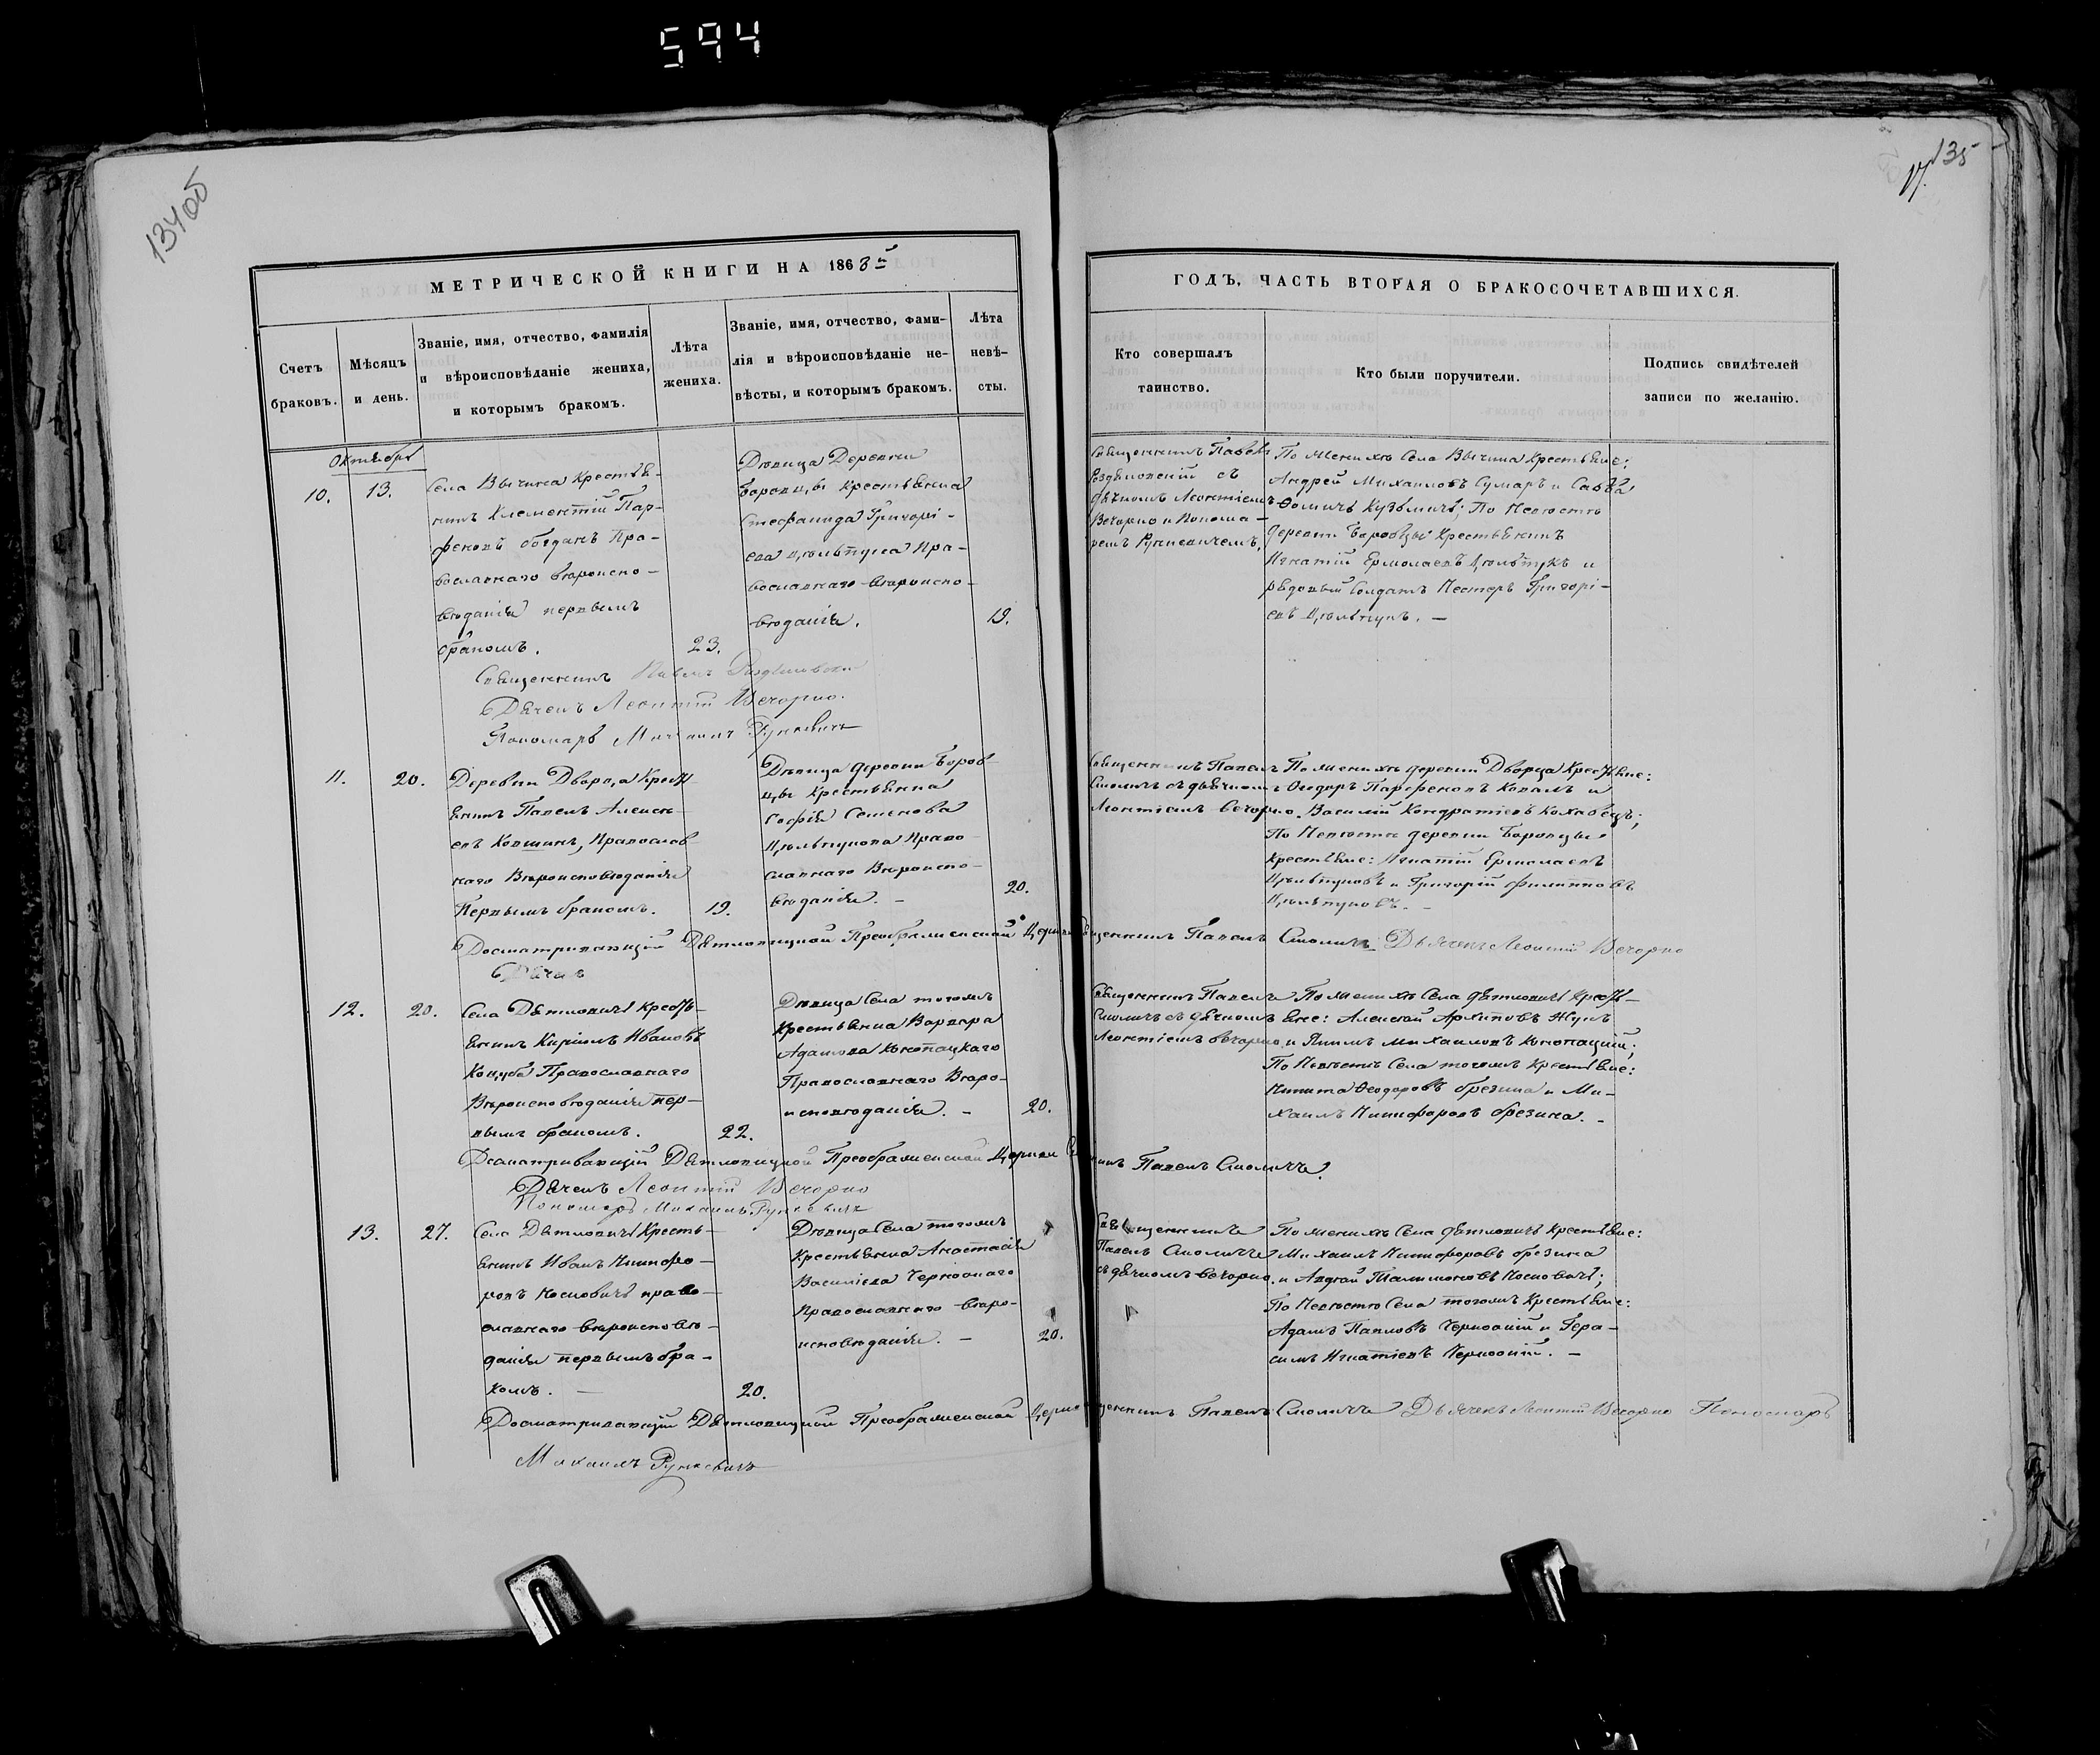 594
134об
135
МЕТРИЧЕСКОЙ КНИГИ НА 1863й
Счетъ браковъ.
Мѣсяцъ и день.
Званіе, имя, отчество, фамилія и вѣроисповѣданіе жениха, и которымъ бракомъ.
Лѣта жениха.
Званіе, имя, отчество, фамилія и вѣроисповѣданіе невѣсты, и которымъ бракомъ.
Лѣта невѣсты.
ГОДЪ, ЧАСТЬ ВТОРАЯ О БРАКОСОЧЕТАВШИХСЯ.
Кто совершалъ таинство.
Кто были поручители.
Подпись свидѣтелей записи по желанію.
Октябрь
10.
13.
Села Вычина Крестья-
нинъ Климентій Пар-
феновъ Богданъ Пра-
вославнаго вѣроиспо-
вѣданія первымъ
бракомъ.
23.
Дѣвица Деревни
Боровцы Крестьянка
Стефанида Григорі-
ева Пра-
вославнаго вѣроиспо-
вѣданія.
19.
Священникъ Павелъ
съ
дьячкомъ Леонтіемъ
Вечорко и Понома-
ремъ Рункевичемъ.
По Женихѣ Села Вычина Крестьяне:
Андрей Михаиловъ Сумаръ и Савва
Ѳоминъ Кузьмичъ; По Невѣстѣ
деревни Боровцы Крестьянинъ
Игнатій Ермолаевъ и
рядовый Солдатъ Несторъ Григорі-
евъ
Священникъ Павелъ
Дьячекъ Леонтій Вечорко.
Пономарь Михаилъ Рункевичъ
11.
20.
Деревни Дворца Кресть-
янинъ Павелъ Алексѣ-
евъ Православ-
наго Вѣроисповѣданія
Первымъ бракомъ.
19.
Дѣвица деревни Боров-
цы Крестьянка
Софія Семенова
Право-
славнаго Вѣроиспо-
вѣданія.
20.
Священникъ Павелъ
Смоличъ съ дьячкомъ
Леонтіемъ Вечорко.
По Женихѣ деревни Дворца Крестьяне:
Ѳеодоръ Парфеновъ Ковалъ и
Василій Кондратіевъ
По Невѣстѣ деревни Боровцы
Крестьяне: Игнатій Ермолаевъ
и Григорій Филипповъ
Досматривающій Дѣтловицкой Преображенской Церкви Священникъ Павелъ Смоличъ Дьячекъ Леонтій Вечорко
Дьячекъ
12.
20.
Села Дѣтловичъ Кресть-
янинъ Кириллъ Ивановъ
Коцуба Православнаго
Вѣроисповѣданія пер-
вымъ бракомъ.
22.
Дѣвица Села тогожъ
Крестьянка Варвара
Адамова Конопацкаго
Православнаго Вѣро-
исповѣданія.
20.
Священникъ Павелъ
Смоличъ съ дьячкомъ
Леонтіемъ Вечорко
По Женихѣ Села Дѣтловичъ Кресть-
яне: Алексѣй Архиповъ Жукъ
и Якимъ Михаиловъ Конопацкій;
По Невѣстѣ Села тогожъ Крестьяне:
Никита Ѳеодоровъ Брезина и Ми-
хаилъ Никифоровъ Брезина.
Досматривающій Дѣтловицкой Преображенской Церкви Священникъ Павелъ Смоличъ
Дьячекъ Леонтій Вечорко
Пономарь Михаилъ Рункевичъ
13.
27.
Села Дѣтловичъ Кресть-
янинъ Иванъ Никифо-
ровъ право-
славнаго вѣроисповѣ-
данія первымъ бра-
комъ.
20.
Дѣвица Села тогожъ
Крестьянка Анастасія
Василіева
Православнаго Вѣро-
исповѣданія.
20.
Священникъ
Павелъ Смоличъ
съ дьячкомъ Вечорко.
По Женихѣ Села Дѣтловичъ Крестьяне:
Михаилъ Никифоровъ Брезина
и
По Невѣстѣ Села тогожъ Крестьяне:
Адамъ Павловъ и Гера-
симъ Игнатіевъ
Досматривающій Дѣтловицкой Преображенской Церкви Священникъ Павелъ Смоличъ Дьячекъ Леонтій Вечорко Пономарь
Михаилъ Рункевичъ